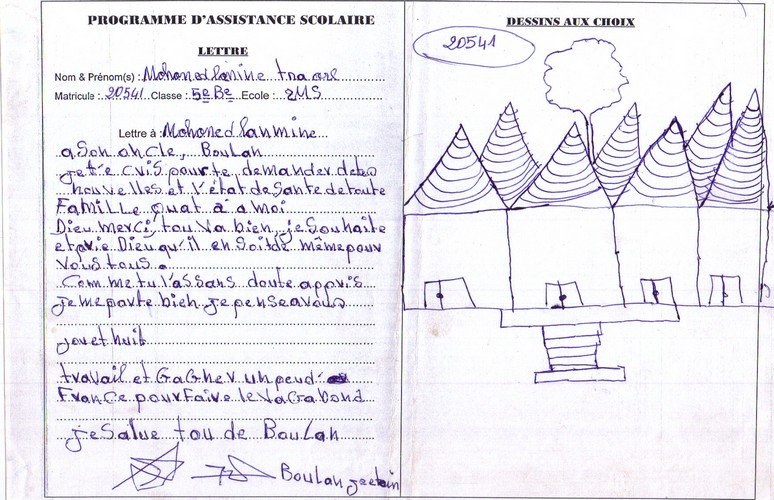 PROGRAMME D'ASSISTANCE SCOLAIRE
LETTRE
Nom & Prénom(s) : Mohomed lamine traore
Matricule : 20541 Classe : 5e Be Ecole : 2MS
Lettre à : Mohomed lanmine
a Son oncle, Boulan
je t'e cris pour te demander de tes
nouvelles et l'état de Sante de toute
Famille, quat à a moi
Dieu merci, tou va bien, je Souhaite
et prie Dieu qu'il en Soit de même pour
vous tous.
Comme tu l'as sans doute appris
je me porte bien je pense a vous
jou et nuit
travail et Gagner un peu d'
France pour Faire le vagabond
je Salue tou de Boulan
Boulan
DESSINS AUX CHOIX
20541